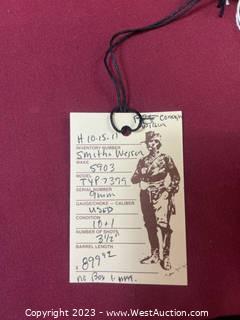 Conceal
H 10.15.11
INVENTORY NUMBER
Smith & Wesson
MAKE
5903
MODEL
TYP7379
SERIAL NUMBER
9mm
GAUGE/CHOKE - CALIBER
USED
CONDITION
10+1
NUMBER OF SHOTS
3½"
BARREL LENGTH
$899
no Box
Copyright © 2023 - www.WestAuction.com